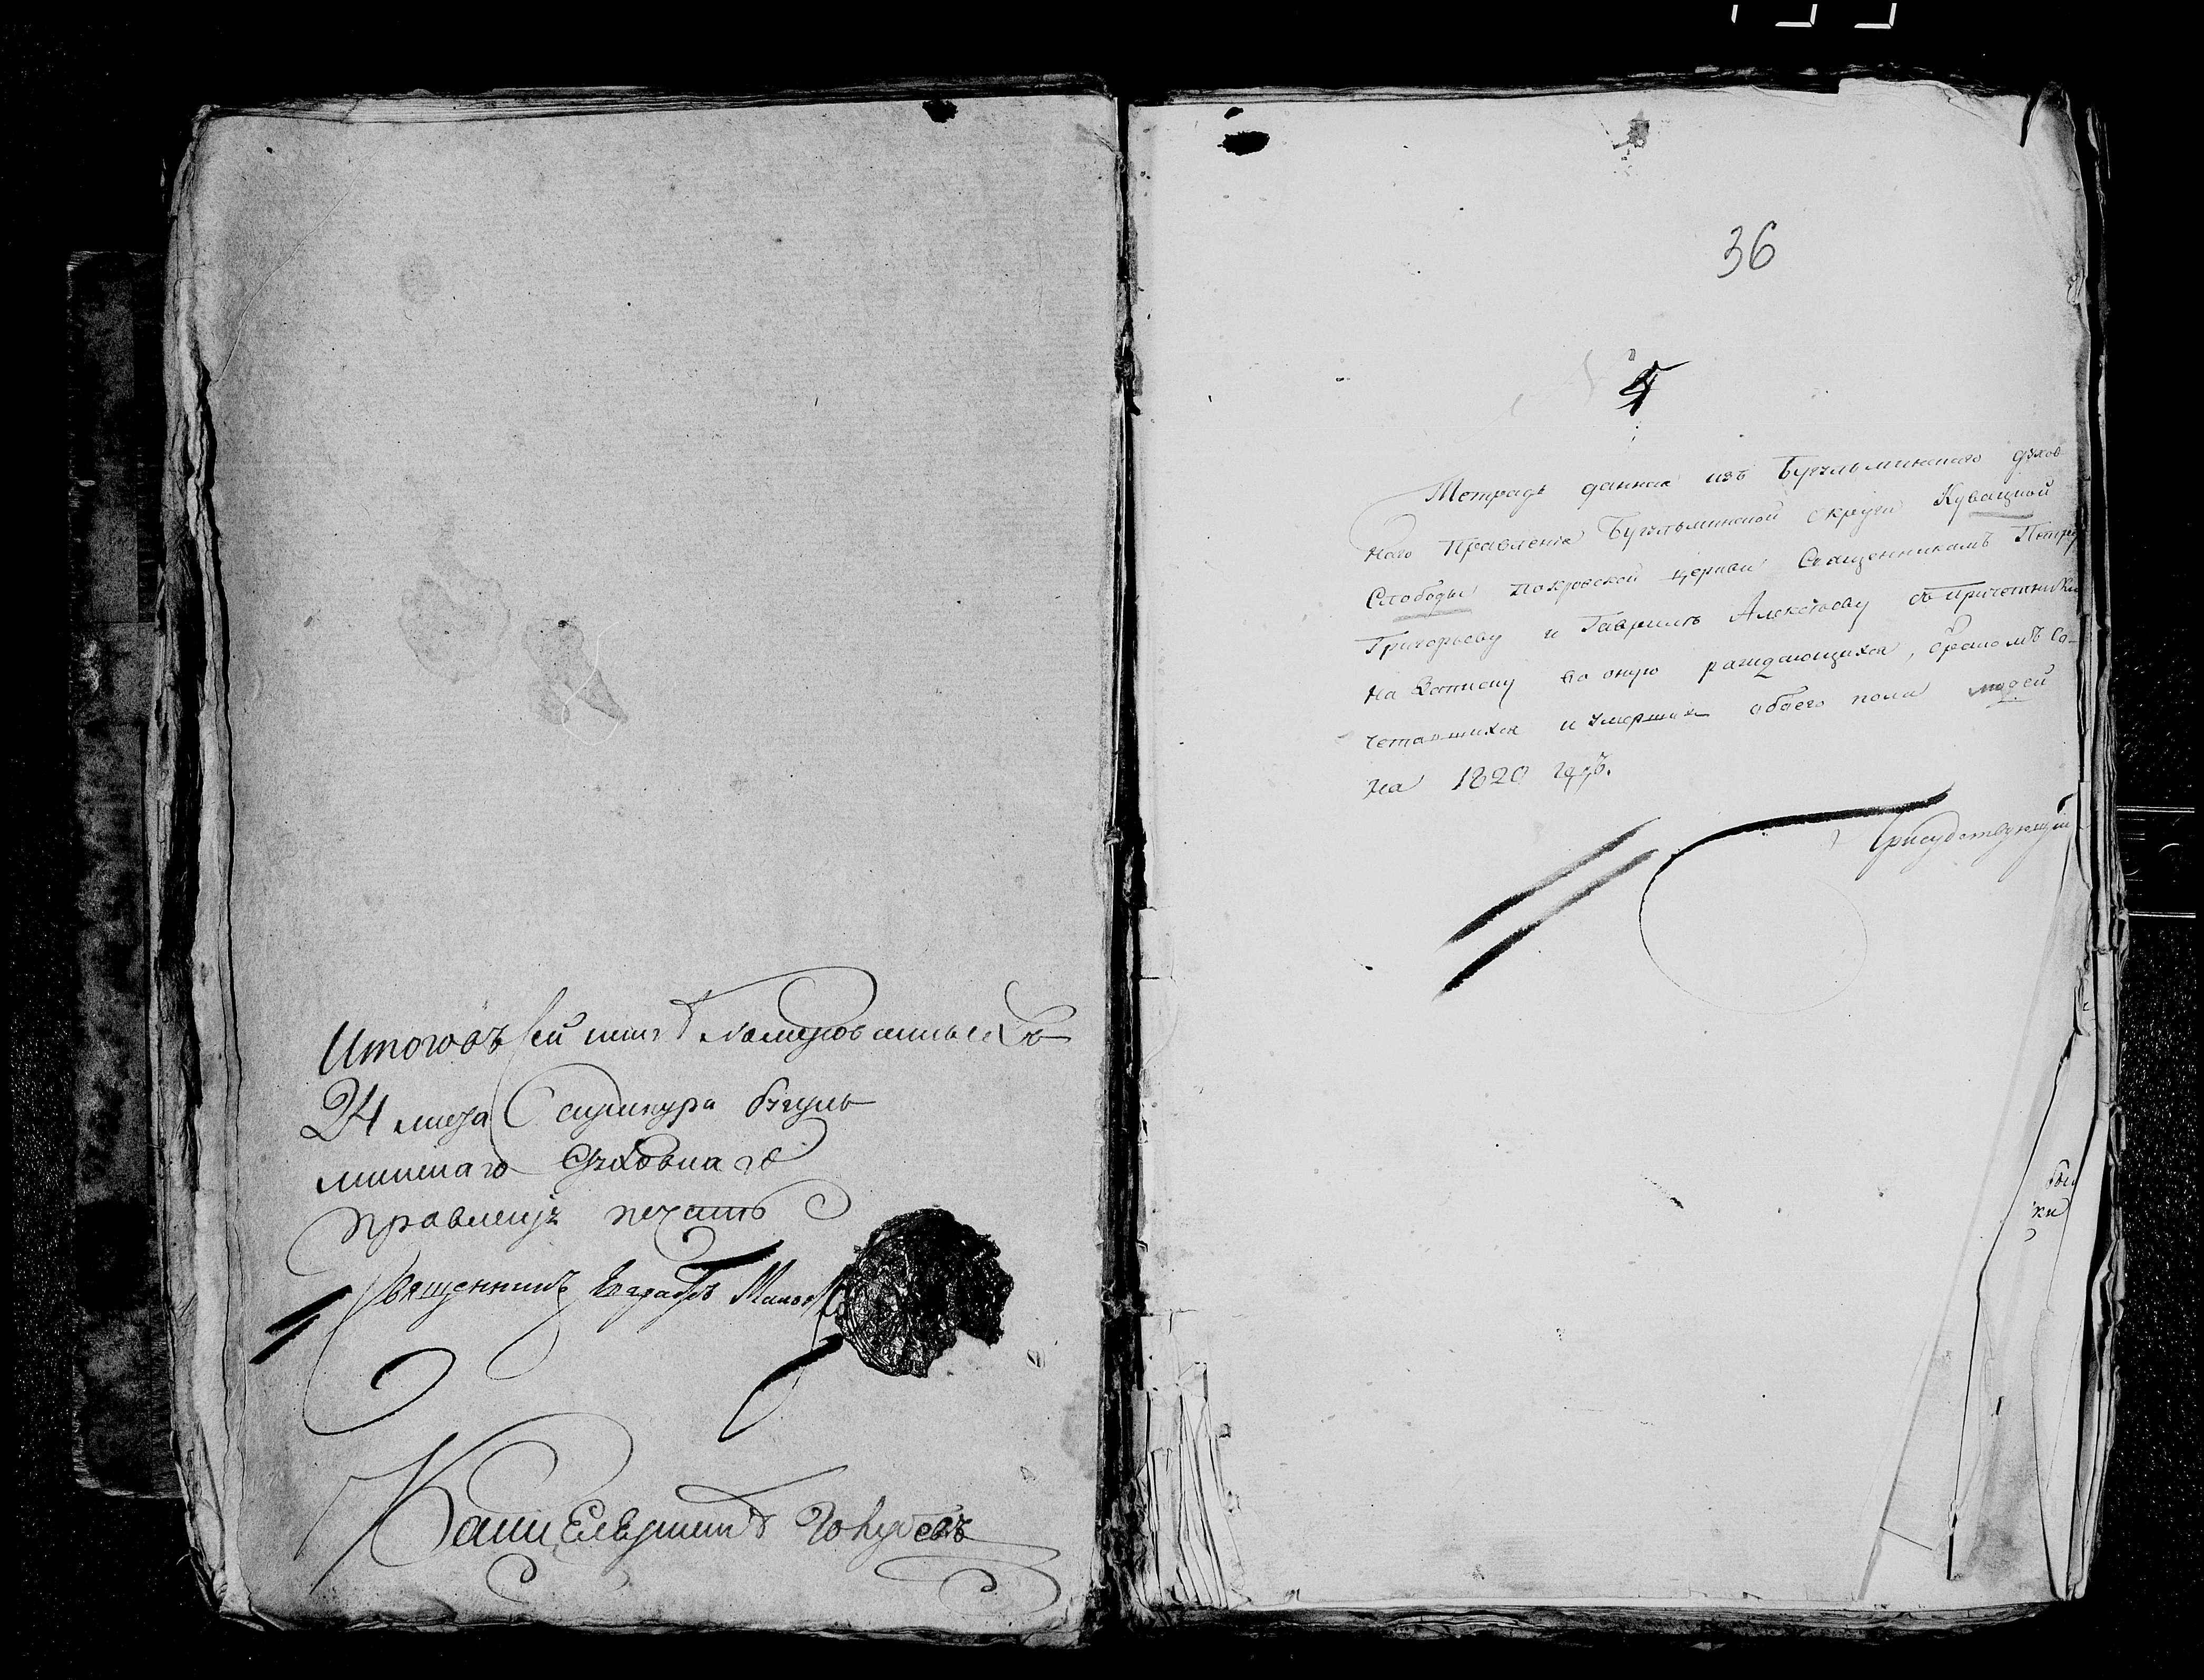 Итогов сей книг номерованных
24 листа
Духовнаго
правленія печать
Священникъ Евграфъ
Канцеляристъ Голубевъ
36
Тетрадь данная изъ Бугульминскаго духов
наго Правленія Бугульминской округи Кувацкой
Слободы Покровской церкви Священникамъ Петру
Григорьеву и Гаврилѣ Алексѣеву съ причетники
на Записку во оную раждающихся, бракомъ со-
четавшихся и умершихъ обоего пола людей
на 1820 годъ.
Присудствующій